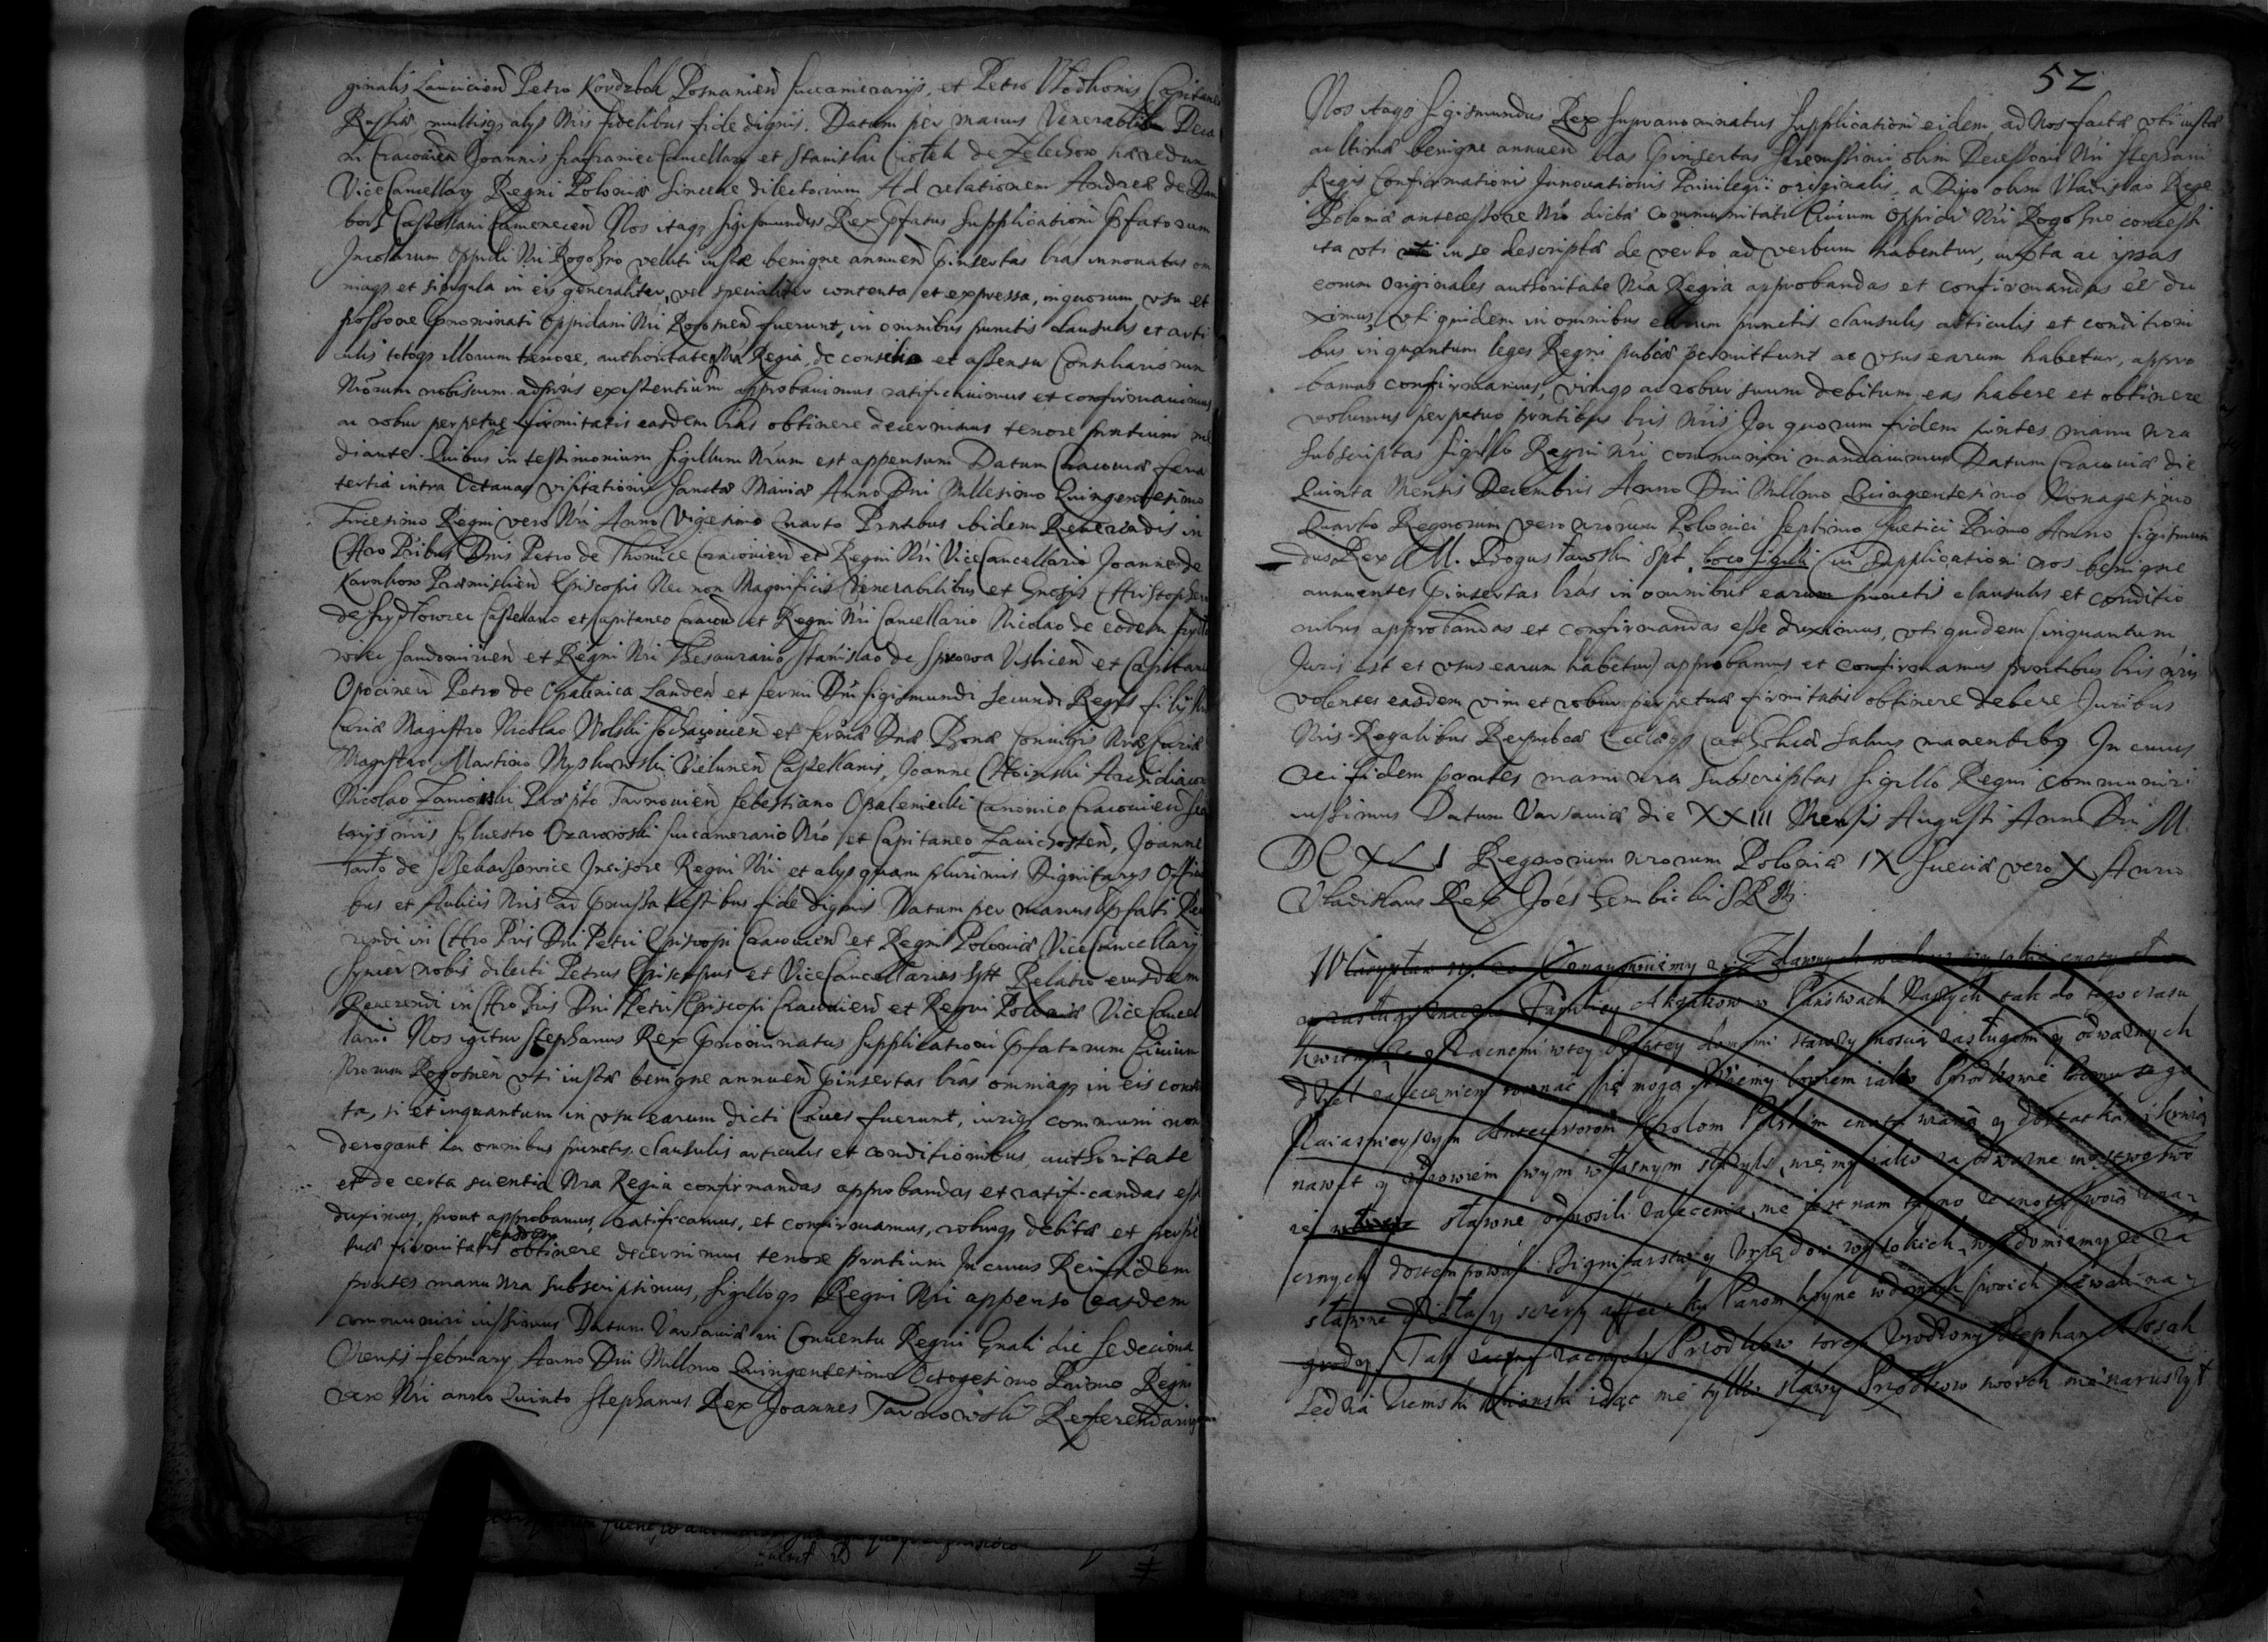 ginalis Lancicien Petro Kordzbok Posnanien Succamerarijs, et Petro Wlodkonis Capitaneo
Russiæ multisq3 alijs Nris fidelibus fide dignis. Datum per manus Venerabilium Deca
ni Cracovien Joannis Szafraniec Cancellarij et Stanislai Ciołek de Zelechow hæredum
ViceCancellarij Regni Poloniæ Sincere dilectorum Ad relationem Andreæ de Dam
borz Castellani Camenecen Nos itaq3 Sigismundus Rex Pfatus Supplicationi Pfatorum
Incolarum Oppidi Nri Rogozno veluti iustæ benigne annuen Pinsertas lras innouatas om
niaq3 et singula in eis generaliter, vel specialiter contenta et expressa, in quorum, vsu et
possone Pnominati Oppidani Nri Rogosnen fuerunt, in omnibus punctis clausulis et arti
culis totoq3 illorum tenore, authoritate Nra Regia, de consilio et assensu Consiliariorum
Nrorum nobiscum adpræs existentium approbauimus ratificauimus et confirmauimus
ac robur perpetuę firmitatis easdem lras obtinere decernimus tenore pntium me
diante. Quibus in testimonium Sigillum Nrum est appensum Datum Cracouiæ feria
tertia intra Octauas visitationis Sanctæ Mariæ Anno Dni Millesimo Quingentesimo
Tricesimo Regni vero Nri Anno Vigesimo Quarto Pntibus ibidem Reuerendis in
Chro Pribus Dnis Petro de Thomice Cracouien et Regni Nri ViceCancellario Joanne de
Karnkow Præmislien Episcopis Nec non Magnificis Venerabilibus et Gnosis Christophoro
de Szydłowiec Castellano et Capitaneo Cracouien et Regni Nri Cancellario Nicolao de eodem Szydło
wiec Sandomirien et Regni Nri Thesaurario Stanislao de Sprowa Vislicien et Capitaneo
Opocinen Petro de Opalenica Landen et Sermi Dni Sigismundi Secundi Regis filij Nri
Curiæ Magistro Nicolao Wolski Sochaczouien et Sermæ Dnæ Bonæ Coniugis Nræ Curiæ
Magistro Martino Myszkowski Vielunen Castellanis, Joanne Choinski Archidiacono
Nicolao Zamoiski Præpto Tarnouien Sebestiano Opaleniecki Canonico Cracouien Secre
tarijs nris Syluestro Ozarowski Succamerario Nro et Capitaneo Zauichosten, Joanne
Tarło de Szczekarzowice Incisore Regni Nri et alijs quam plurimis Dignitarijs Officia
bus et Aulicis Nris ad Pmissa testibus fide dignis Datum per manus Pfati Reue
rendi in Chro Pris Dni Petri Episcopi Cracouien et Regni Poloniæ ViceCancellarij
Syncere nobis dilecti Petrus Episcopus et ViceCancellarius spt Relatio eiusdem
Reuerendi in Chro Pris Dni Petri Episcopi Cracouien et Regni Poloniæ ViceCancel
larij Nos igitur Stephanus Rex Pnominatus Supplicationi Pfatorum Ciuium
Nrorum Rogosnen vti iustæ benigne annuen Pinsertas lras omniaq3 in eis conten
ta, si et inquantum in vsu earum dicti Ciues fuerunt, iuriq3 communi non
derogant in omnibus punctis clausulis articulis et conditionibus authoritate
et de certa scientia Nra Regia confirmandas approbandas et ratificandas esse
duximus, prout approbamus, ratificamus, et confirmamus, roburq3 debitæ et perpe
tuæ firmitatis easdem obtinere decernimus tenore pntium In cuius Rei fidem
pntes manu Nra subscripsimus, Sigilloq3 Regni Nri appenso easdem
communiri iussimus Datum Varsauiæ in Conuentu Regni Gnali die Sedecima
Mensis February Anno Dni Millmo Quingentesimo Octogesimo Primo Regni
vero Nri anno Quinto Stephanus Rex Joannes Tarnowski Referendarius
52
Nos itaq3 Sigismundus Rex Supranominatus Supplicationi eidem, ad Nos factæ vti iustæ
ac ltimæ benigne annuen lras Pinsertas Serenissimi olim Decessoris Nri Stephani
Regis Confirmationis Innouationis Priuilegii originalis, a Diuo olim Vladislao Rege
Poloniæ antecessore Nro dictæ Communitati Ciuium Oppidi Nri Rogozno concessi
ita vti in se descriptæ de verbo ad verbum habentur, iuxta ac ipsas
eorum originales authoritate Nra Regia approbandas et confirmandas ee du
ximus, vti quidem in omnibus earum punctis clausulis articulis et conditioni
bus inquantum leges Regni publicæ permittunt ac vsus earum habetur, appro
bamus confirmamus, vimq3 ac robur suum debitum eas habere et obtinere
volumus perpetuo pntibus lris nris. In quorum fidem pntes manu nra
subscriptas Sigillo Regni Nri communiri mandauimus Datum Cracouiæ die
Quinta Mensis Decembris Anno Dni Millmo Quingentesimo Nonagesimo
Quarto Regnorum vero nrorum Polonici Septimo Suetici Primo Anno Sigismun
dus Rex M. Bogusławski Spt. Loco Sigilli Cui Supplicationi nos benigne
annuentes Pinsertas lras in omnibus earum punctis clausulis et conditio
nibus approbandas et confirmandas esse duximus, vti quidem (inquantum
Juris est et vsus earum habetur) approbamus et confirmamus pntibus lris nris
volentes easdem vim et robur perpetuæ firmitatis obtinere debere Juribus
Nris Regalibus Reipublicæ Ecclæq3 Catholicæ saluis manentibus In cuius
rei fidem pntes manu nra subscriptas Sigillo Regni communiri
iussimus Datum Varsauiæ die XXIII Mensis Augusti Anno Dni M.
DCXLI Regnorum nrorum Poloniæ IX Sueciæ vero X Anno
Vladislaus Rex Joes Gembicki SRM
Władysław IV. etc Oznaymuiemy Z dawnych
zasługi znaczne Familiey Aksakow w Państwach Naszych tak do tego czasu
zacnemi w tey domami starożytnością zasługami y odważnych
dzieł zaleceniem rownać się mogą bowiem iako Przodkowie
Naiasnieyszym Antecessorom Krolom Polskim cnotą wiarą y dostatkami
nawet y zdrowiem swym własnym służyli, mamy iako za odważne męstwo swo
ie sławne odnosili zalecenia, nie iest nam tayno że cnotą swoią
dostępowali Dignitarstw y Vrzędow wysokich, wiadomiśmy że za
sławne dzieła y szczery affect ku Panom hoyne w domach swoich
grody. Tak zacnych Przodkow torem Vrodzony Stephan Aksak
Sędzia Ziemski Kiiowski idąc nie tylko sławy Przodkow swoich nie naruszył